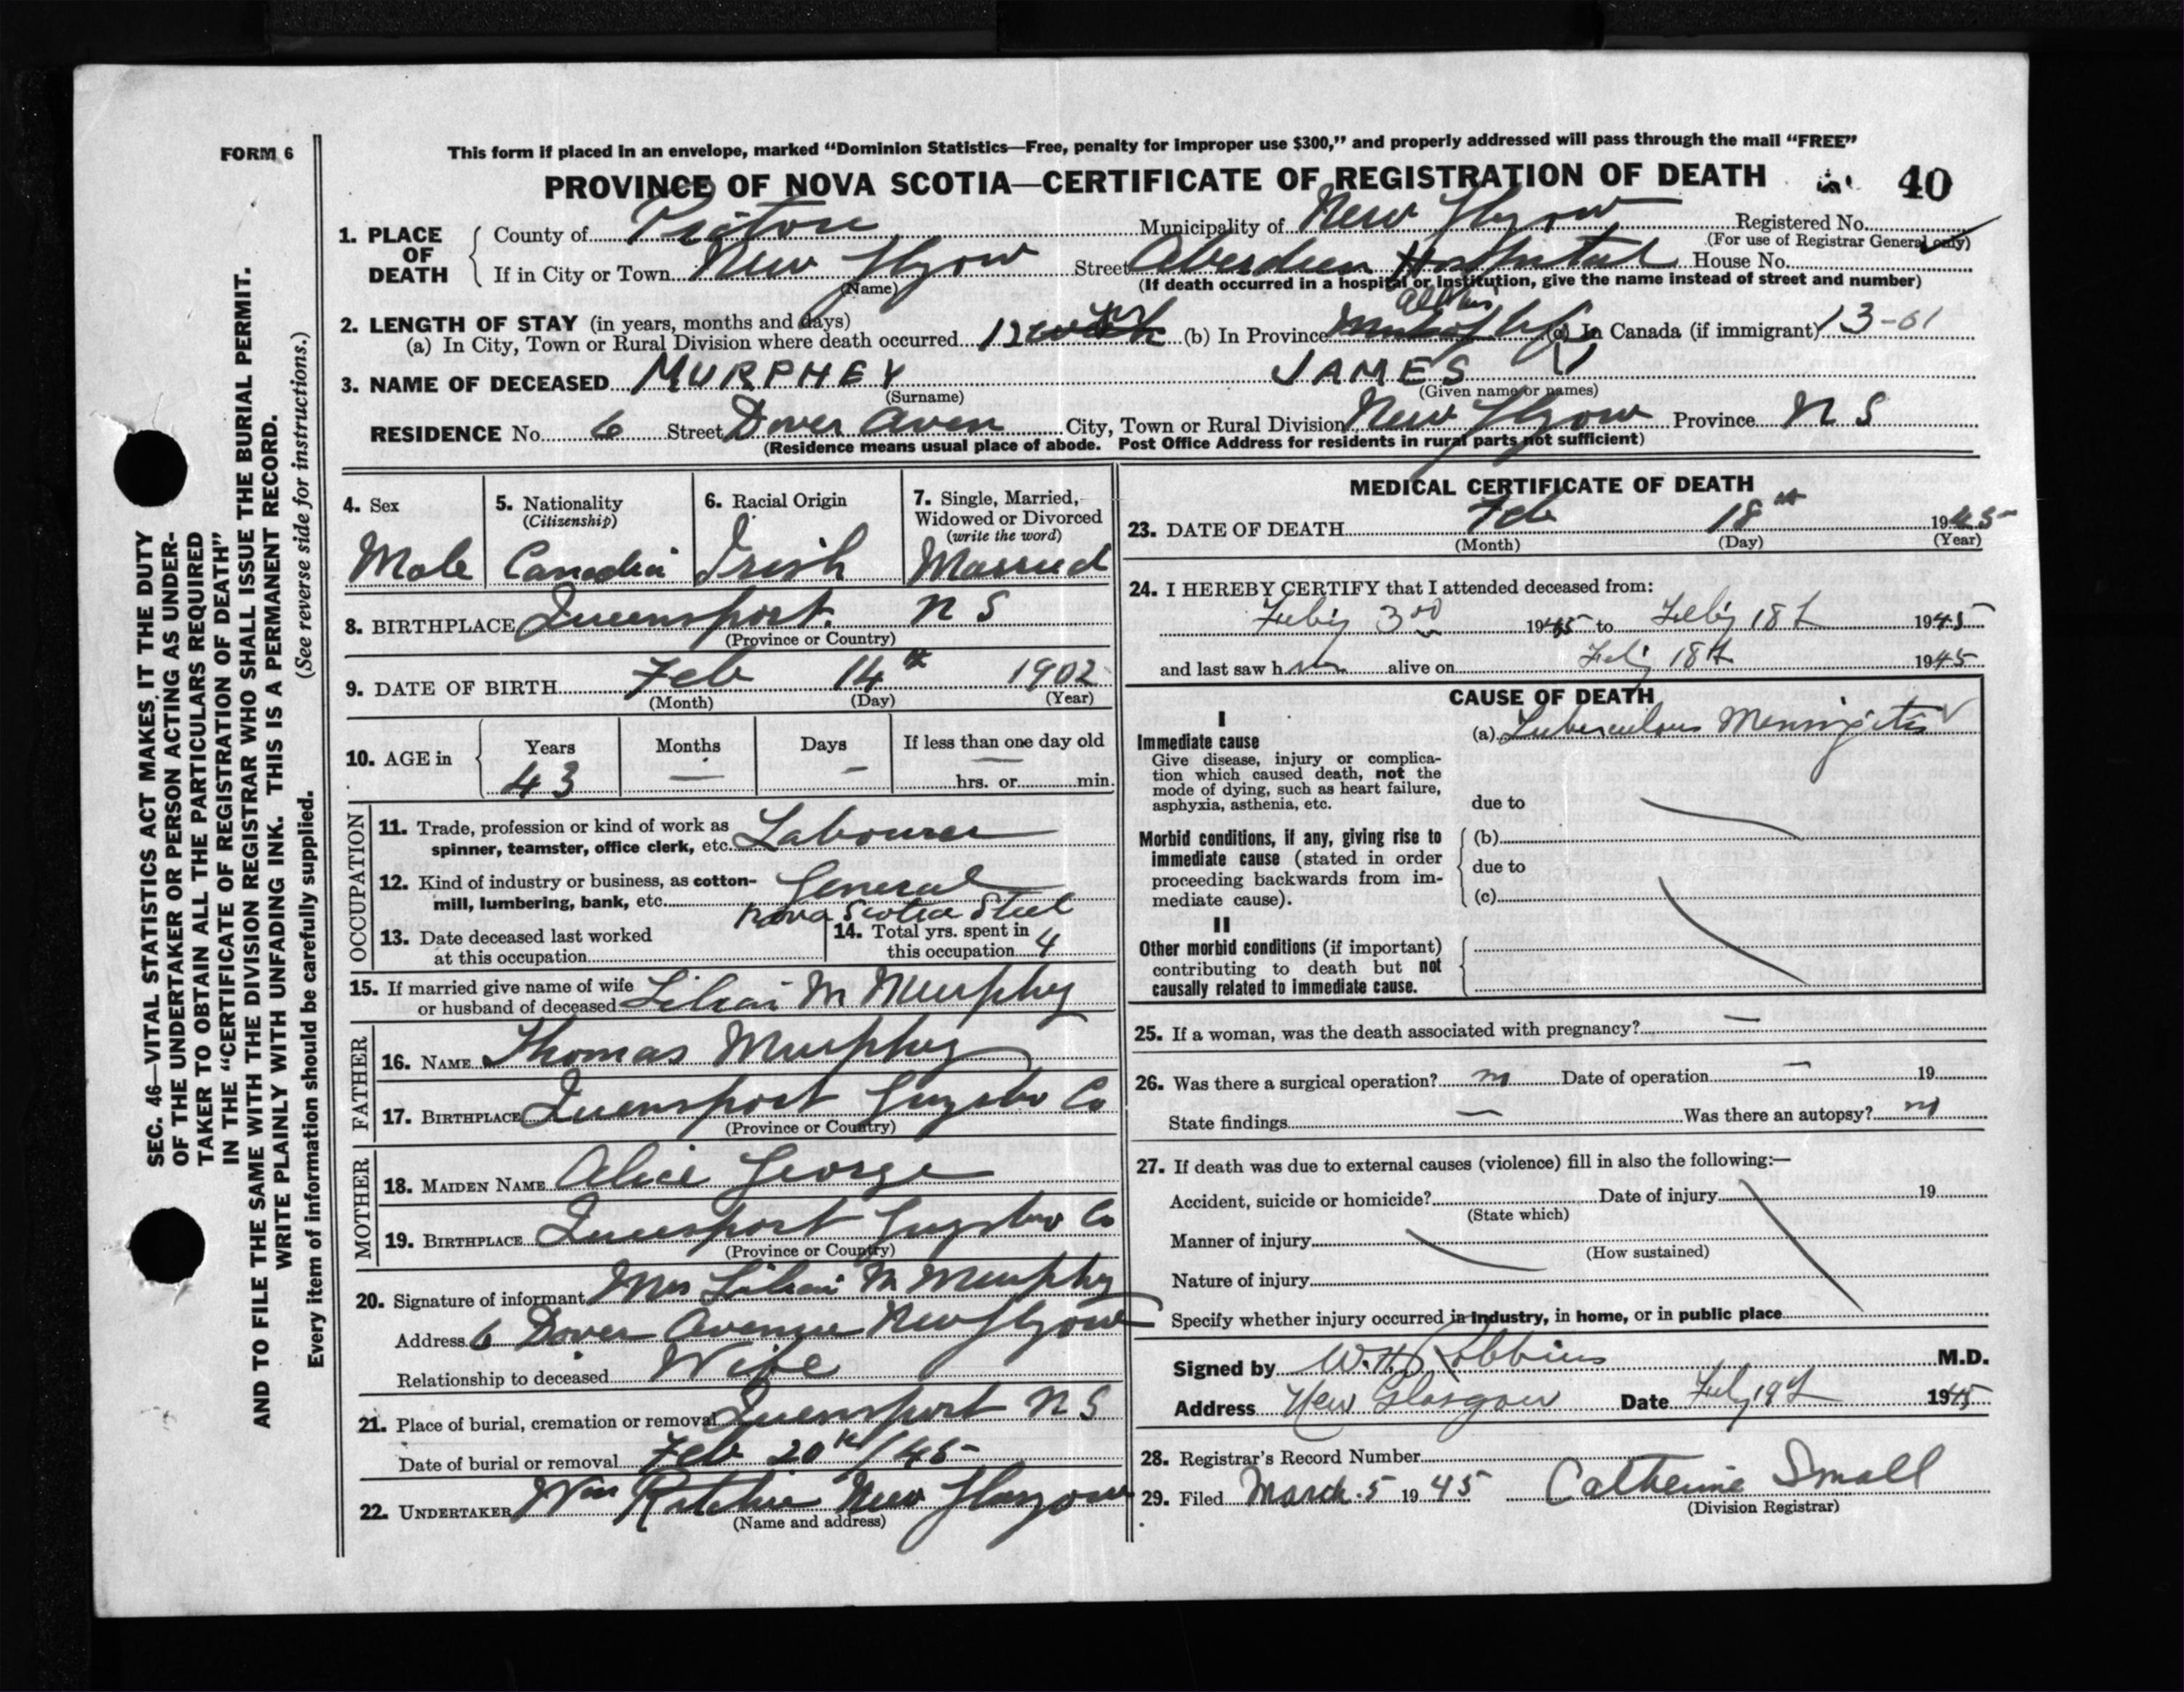 FORM 6
This form if placed in an envelope, marked “Dominion Statistics—Free, penalty for improper use $300,” and properly addressed will pass through the mail “FREE”
PROVINCE OF NOVA SCOTIA—CERTIFICATE OF REGISTRATION OF DEATH 40
SEC. 46—VITAL STATISTICS ACT MAKES IT THE DUTY
OF THE UNDERTAKER OR PERSON ACTING AS UNDER-
TAKER TO OBTAIN ALL THE PARTICULARS REQUIRED
IN THE “CERTIFICATE OF REGISTRATION OF DEATH”
AND TO FILE THE SAME WITH THE DIVISION REGISTRAR WHO SHALL ISSUE THE BURIAL PERMIT.
WRITE PLAINLY WITH UNFADING INK. THIS IS A PERMANENT RECORD.
Every item of information should be carefully supplied. (See reverse side for instructions.)
1. PLACE OF DEATH
County of Pictou Municipality of New Glgow Registered No.
(For use of Registrar General only)
If in City or Town New Glgow Street Aberdeen Hospital House No.
(Name) (If death occurred in a hospital or institution, give the name instead of street and number)
2. LENGTH OF STAY (in years, months and days)
(a) In City, Town or Rural Division where death occurred 12 (b) In Province (c) In Canada (if immigrant) 13-01
3. NAME OF DECEASED MURPHEY JAMES
(Surname) (Given name or names)
RESIDENCE No. 6 Street Dover Aven City, Town or Rural Division New Glgow Province N S
(Residence means usual place of abode. Post Office Address for residents in rural parts not sufficient)
4. Sex
Male
5. Nationality
(Citizenship)
Canadia
6. Racial Origin
Irish
7. Single, Married,
Widowed or Divorced
(write the word)
Married
8. BIRTHPLACE Queensport. N S
(Province or Country)
9. DATE OF BIRTH Feb 14th 1902
(Month) (Day) (Year)
10. AGE in Years Months Days If less than one day old
43 — — —
hrs. or min.
OCCUPATION
11. Trade, profession or kind of work as
spinner, teamster, office clerk, etc. Labourer
12. Kind of industry or business, as cotton-
mill, lumbering, bank, etc. General
Nova Scotia Steel
13. Date deceased last worked
at this occupation
14. Total yrs. spent in
this occupation 4
15. If married give name of wife
or husband of deceased Lilian M Murphy
FATHER
16. NAME Thomas Murphy
17. BIRTHPLACE Queensport Guysbro Co
(Province or Country)
MOTHER
18. MAIDEN NAME Alice George
19. BIRTHPLACE Queensport Guysbro Co
(Province or Country)
20. Signature of informant Mrs Lilian M Murphy
Address 6 Dover Avenue New Glgow
Relationship to deceased Wife
21. Place of burial, cremation or removal Queensport N S
Date of burial or removal Feb 20th/45
22. UNDERTAKER Wm Ritchie New Glasgow
(Name and address)
MEDICAL CERTIFICATE OF DEATH
23. DATE OF DEATH Feb 18th 1945
(Month) (Day) (Year)
24. I HEREBY CERTIFY that I attended deceased from:
Feby 3rd 1945 to Feby 18th 1945
and last saw h im alive on Feby 18th 1945
CAUSE OF DEATH
I
Immediate cause
Give disease, injury or complica-
tion which caused death, not the
mode of dying, such as heart failure,
asphyxia, asthenia, etc.
(a) Tuberculous Meningitis
due to
Morbid conditions, if any, giving rise to
immediate cause (stated in order
proceeding backwards from im-
mediate cause).
(b)
due to
(c)
II
Other morbid conditions (if important)
contributing to death but not
causally related to immediate cause.
25. If a woman, was the death associated with pregnancy? —
26. Was there a surgical operation? no Date of operation — 19
State findings — Was there an autopsy? no
27. If death was due to external causes (violence) fill in also the following:—
Accident, suicide or homicide? Date of injury 19
(State which)
Manner of injury
(How sustained)
Nature of injury
Specify whether injury occurred in industry, in home, or in public place
Signed by W.H. Robbins M.D.
Address New Glasgow Date Feby 19th 1945
28. Registrar’s Record Number
29. Filed March 5 1945 Catherine Small
(Division Registrar)